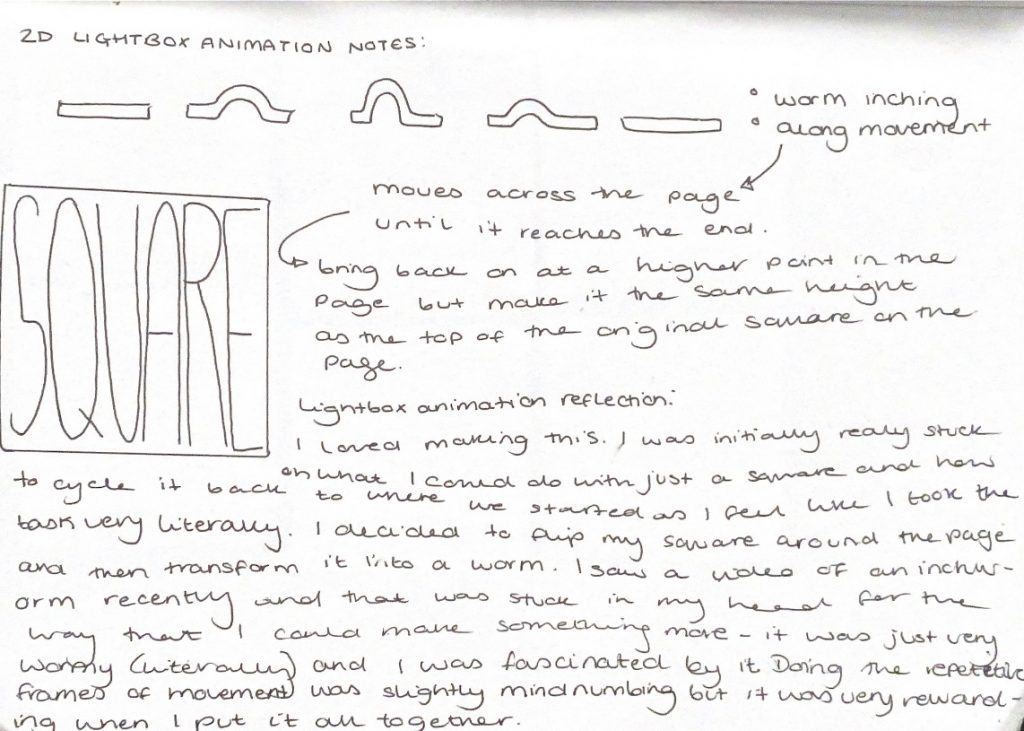 2D LIGHTBOX ANIMATION NOTES:
• worm inching
• along movement
moves across the page
until it reaches the end.
bring back on at a higher point in the
page but make it the same height
as the top of the original square on the
page.
SQUARE
Lightbox animation reflection:
I loved making this. I was initially really stuck
on what I could do with just a square and how
to cycle it back to where we started as I feel like I took the
task very literally. I decided to flip my square around the page
and then transform it into a worm. I saw a video of an inchw-
orm recently and that was stuck in my head for the
way that I could make something move - it was just very
wormy (literally) and I was fascinated by it. Doing the repetetive
frames of movement was slightly mindnumbing but it was very reward-
ing when I put it all together.